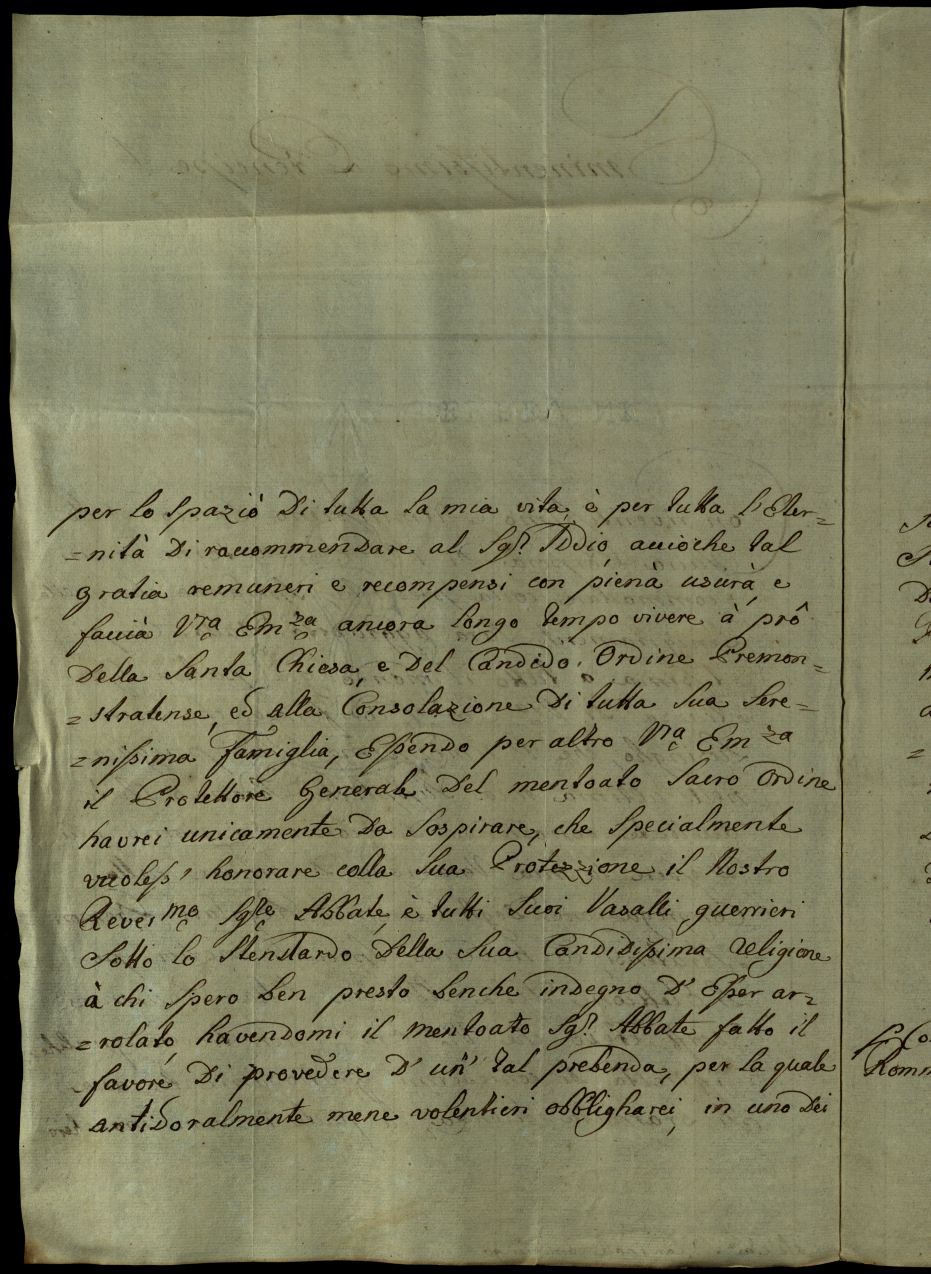 per lo spazio di tutta la mia vita, è per tutta l'Eter=
=nità di raccommendare al Sg.r Iddio, accioche tal
gratia remuneri e recompensi con pienà usurà, e
faccià V.ra Em.za ancora longo tempo vivere à prô
della Santa Chiesa, e del Candido Ordine Premon=
=stratense, ed alla Consolazione di tutta sua Sere=
=nissima famiglia, Essendo per altro V.ra Em.za
il Protettore Generale del mentoato Sacro Ordine
havrei unicamente da sospirare, che specialmente
honorare colla sua Protezzione il Nostro
Rever.mo Sg.re Abbate, è tutti suoi Vasalli guerrieri
Sotto lo Stenstardo della sua Candidissima religione
à chi spero ben presto benche indegno d'Esser ar=
=rolato, havendomi il mentoato Sg.r Abbate fatto il
favore di provedere d'un' tal prebenda, per la quale
antidoralmente mene volentieri obbligharei, in uno dei